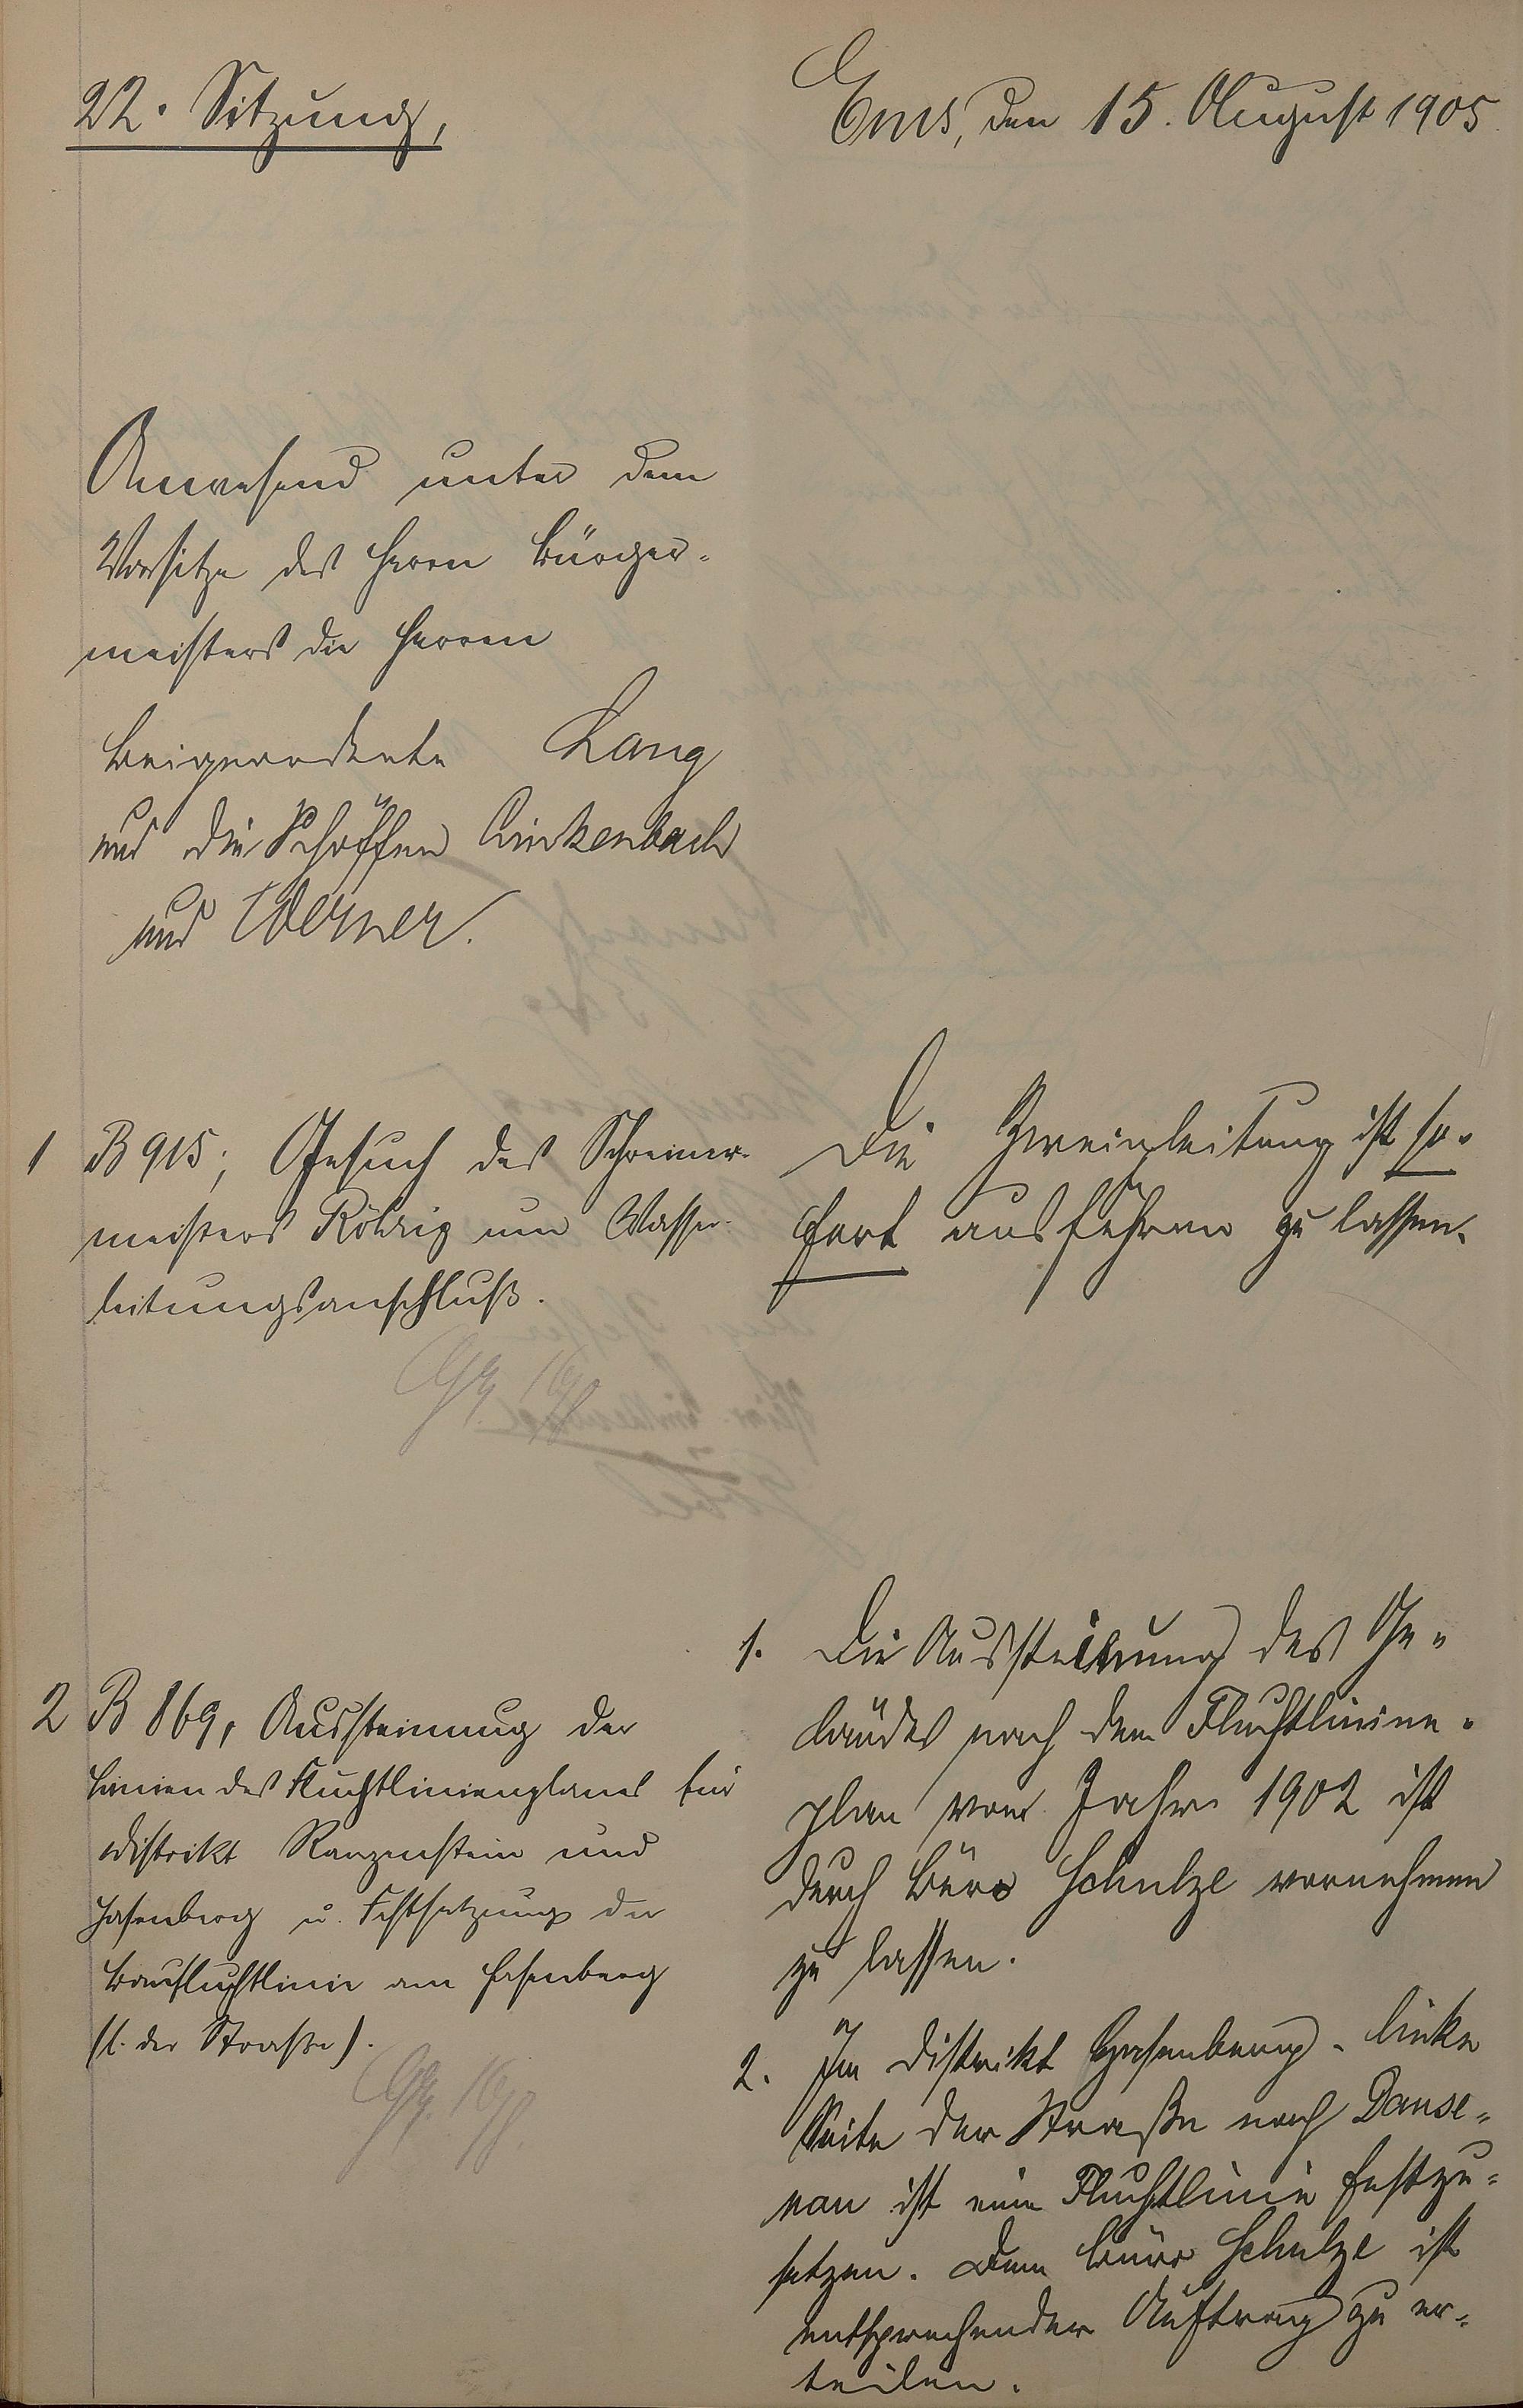 22. Sitzung,
Ems, den 15. August 1905.
Anwesend unter dem
Vorsitze des Herrn Bürger-
meisters die Herren
Beigeordnete Lang
und die Schöffen Linkenbach
und Werner.
1 B 915; Gesuch des Schreiner-
meisters Röhrig um Wasser-
leitungsanschluß.
Die Zweigleitung ist so-
fort ausführen zu lassen.
2 B 869, Aussteinung der
Linien des Fluchtlinienplanes für
Distrikt Ranzenstein und
Hasenberg u. Festsetzung der
Baufluchtlinie am Hasenberg
(l. der Straße).
1. Die Aussteinung des Ge-
ländes nach dem Fluchtlinien-
plan vom Jahre 1902 ist
durch Büro Schulze vornehmen
zu lassen.
2. Im Distrikt Hasenberg - linke
Seite der Straße nach Dause-
nau ist eine Fluchtlinie festzu-
setzen. Dem Büro Schulze ist
entsprechender Auftrag zu er-
teilen.